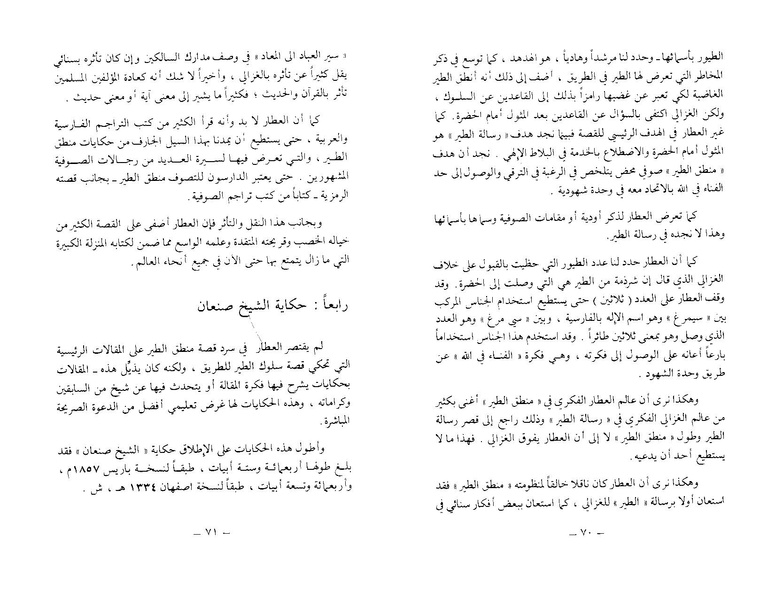 الطيور بأسمائها ـ وحدد لنا مرشداً وهادياً ، هو الهدهد ، كما توسع في ذكر
المخاطر التي تعرض لها الطير في الطريق ، أضف إلى ذلك أنه أنطق الطير
الغاضبة لكي تعبر عن غضبها رامزاً بذلك إلى القاعدين عن السلوك ،
ولكن الغزالي اكتفى بالسؤال عن القاعدين بعد المثول أمام الحضرة. كما
غير العطار في الهدف الرئيسي للقصة فبينما نجد هدف « رسالة الطير » هو
المثول أمام الحضرة والاضطلاع بالخدمة في البلاط الإلهي . نجد أن هدف
« منطق الطير » صوفي محض يتلخص في الرغبة في الترقي والوصول إلى حد
الفناء في الله بالاتحاد معه في وحدة شهودية .
كما تعرض العطار لذكر أودية أو مقامات الصوفية وسماها بأسمائها
وهذا لا نجده في رسالة الطير.
كما أن العطار حدد لنا عدد الطيور التي حظيت بالقبول على خلاف
الغزالي الذي قال إن شرذمة من الطير هي التي وصلت إلى الحضرة. وقد
وقف العطار على العدد ( ثلاثين ) حتى يستطيع استخدام الجناس المركب
بين « سيمرغ » وهو اسم الإله بالفارسية ، وبين « سي مرغ » وهو العدد
الذي وصل وهو بمعنى ثلاثين طائراً . وقد استخدم هذا الجناس استخداماً
بارعاً أعانه على الوصول إلى فكرته ، وهي فكرة « الفناء في الله » عن
طريق وحدة الشهود .
وهكذا نرى أن عالم العطار الفكري في « منطق الطير » أغنى بكثير
من عالم الغزالي الفكري في « رسالة الطير » وذلك راجع إلى قصر رسالة
الطير وطول « منطق الطير » لا إلى أن العطار يفوق الغزالي . فهذا ما لا
يستطيع أحد أن يدعيه.
وهكذا نرى أن العطار كان ناقلا خالقاً لمنظومته « منطق الطير » فقد
استعان أولا برسالة « الطير » للغزالي ، كما استعان ببعض أفكار سنائي في
ـ ٧٠ ـ
« سير العباد الى المعاد » في وصف مدارك السالكين وإن كان تأثره بسنائي
يقل كثيراً عن تأثره بالغزالي ، وأخيراً لا شك أنه كعادة المؤلفين المسلمين
تأثر بالقرآن والحديث ؛ فكثيراً ما يشير إلى معنى آية أو معنى حديث .
كما أن العطار لا بد وأنه قرأ الكثير من كتب التراجم الفارسية
والعربية ، حتى يستطيع أن يمدنا بهذا السيل الجارف من حكايات منطق
الطير ، والتي تعرض فيها لسيرة العديد من رجالات الصوفية
المشهورين . حتى يعتبر الدارسون للتصوف منطق الطير ـ بجانب قصته
الرمزية ـ كتاباً من كتب تراجم الصوفية.
وبجانب هذا النقل والتأثر فإن العطار أضفى على القصة الكثير من
خياله الخصب وقريحته المتقدة وعلمه الواسع مما ضمن لكتابه المنزلة الكبيرة
التي ما زال يتمتع بها حتى الآن في جميع أنحاء العالم.
رابعاً : حكاية الشيخ صنعان
لم يقتصر العطار في سرد قصة منطق الطير على المقالات الرئيسية
التي تحكي قصة سلوك الطير للطريق ، ولكنه كان يذيّل هذه ـ المقالات
بحكايات يشرح فيها فكرة المقالة أو يتحدث فيها عن شيخ من السابقين
وكراماته ، وهذه الحكايات لها غرض تعليمي أفضل من الدعوة الصريحة
المباشرة.
وأطول هذه الحكايات على الإطلاق حكاية « الشيخ صنعان » فقد
بلغ طولها أربعمائة وستة أبيات ، طبقاً لنسخة باريس ١٨٥٧م ،
وأربعمائة وتسعة أبيات ، طبقاً لنسخة اصفهان ١٣٣٤ هـ ، ش .
ـ ٧١ ـ